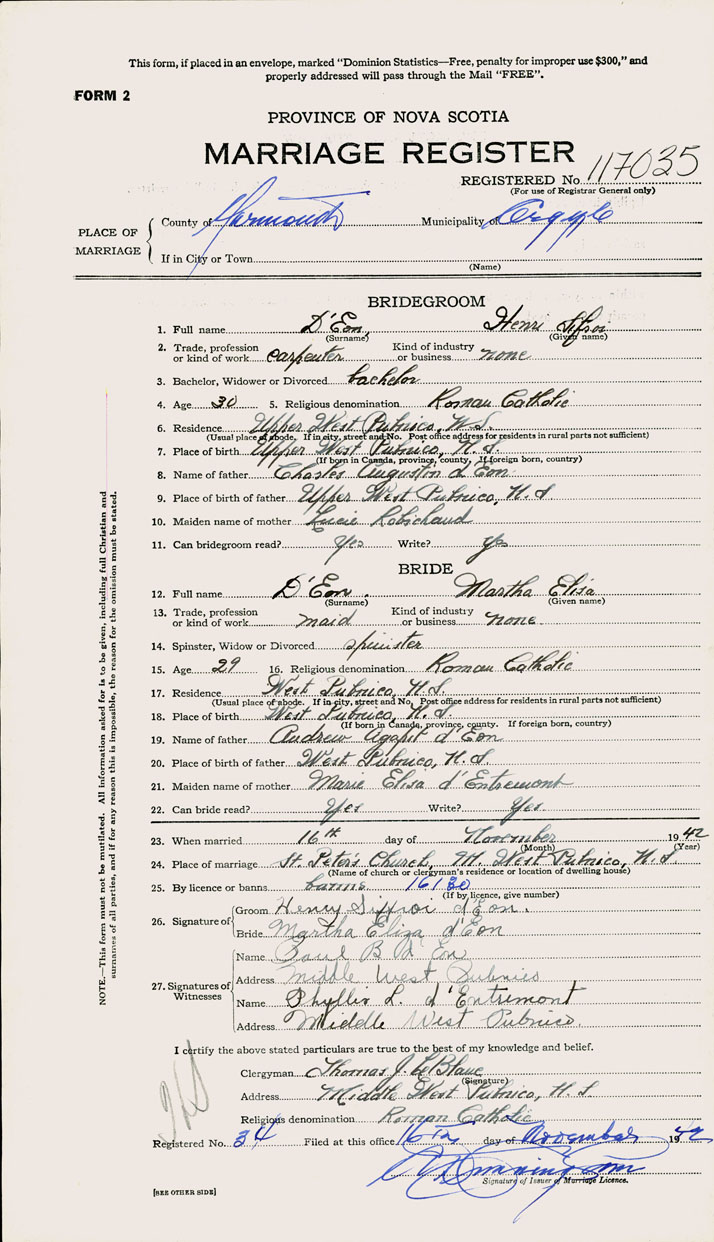 This form, if placed in an envelope, marked "Dominion Statistics—Free, penalty for improper use $300," and
properly addressed will pass through the Mail "FREE".
FORM 2
PROVINCE OF NOVA SCOTIA
MARRIAGE REGISTER
REGISTERED No. 117035
(For use of Registrar General only)
PLACE OF MARRIAGE
County of Yarmouth Municipality of Argyle
If in City or Town
(Name)
BRIDEGROOM
1. Full name D'Eon, Henri Sifroi
(Surname) (Given name)
2. Trade, profession or kind of work carpenter Kind of industry or business none
3. Bachelor, Widower or Divorced bachelor
4. Age 30 5. Religious denomination Roman Catholic
6. Residence Upper West Pubnico, N.S.
(Usual place of abode. If in city, street and No. Post office address for residents in rural parts not sufficient)
7. Place of birth Upper West Pubnico, N.S.
(If born in Canada, province, county. If foreign born, country)
8. Name of father Charles Augustin d'Eon
9. Place of birth of father Upper West Pubnico, N.S
10. Maiden name of mother Lucie Robichaud
11. Can bridegroom read? Yes Write? yes
BRIDE
12. Full name D'Eon. Martha Elisa
(Surname) (Given name)
13. Trade, profession or kind of work maid Kind of industry or business none.
14. Spinster, Widow or Divorced spinister
15. Age 29 16. Religious denomination Roman Catholic
17. Residence West Pubnico, N.S.
(Usual place of abode. If in city, street and No. Post office address for residents in rural parts not sufficient)
18. Place of birth West Pubnico, N.S.
(If born in Canada, province, county. If foreign born, country)
19. Name of father Andrew Agapit d'Eon
20. Place of birth of father West Pubnico, N.S
21. Maiden name of mother Marie Elisa d'Entremont
22. Can bride read? Yes Write? Yes.
23. When married 16th day of November 1942
(Month) (Year)
24. Place of marriage St. Peter's Church, M. West Pubnico, N.S
(Name of church or clergyman's residence or location of dwelling house)
25. By licence or banns banns 16130
(If by licence, give number)
26. Signature of
Groom Henry Siffroi d'Eon.
Bride Martha Eliza d'Eon
27. Signatures of Witnesses
Name Paul B. d'Eon
Address Middle West Pubnico
Name Phyllis L. d'Entremont
Address Middle West Pubnico.
I certify the above stated particulars are true to the best of my knowledge and belief.
Clergyman Thomas J. LeBlanc
(Signature)
Address Middle West Pubnico, N.S.
Religious denomination Roman Catholic
Registered No. 34 Filed at this office 16th day of November 1942
Signature of Issuer of Marriage Licence.
[SEE OTHER SIDE]
NOTE.—This form must not be mutilated. All information asked for is to be given, including full Christian and
surnames of all parties, and if for any reason this is impossible, the reason for the omission must be stated.